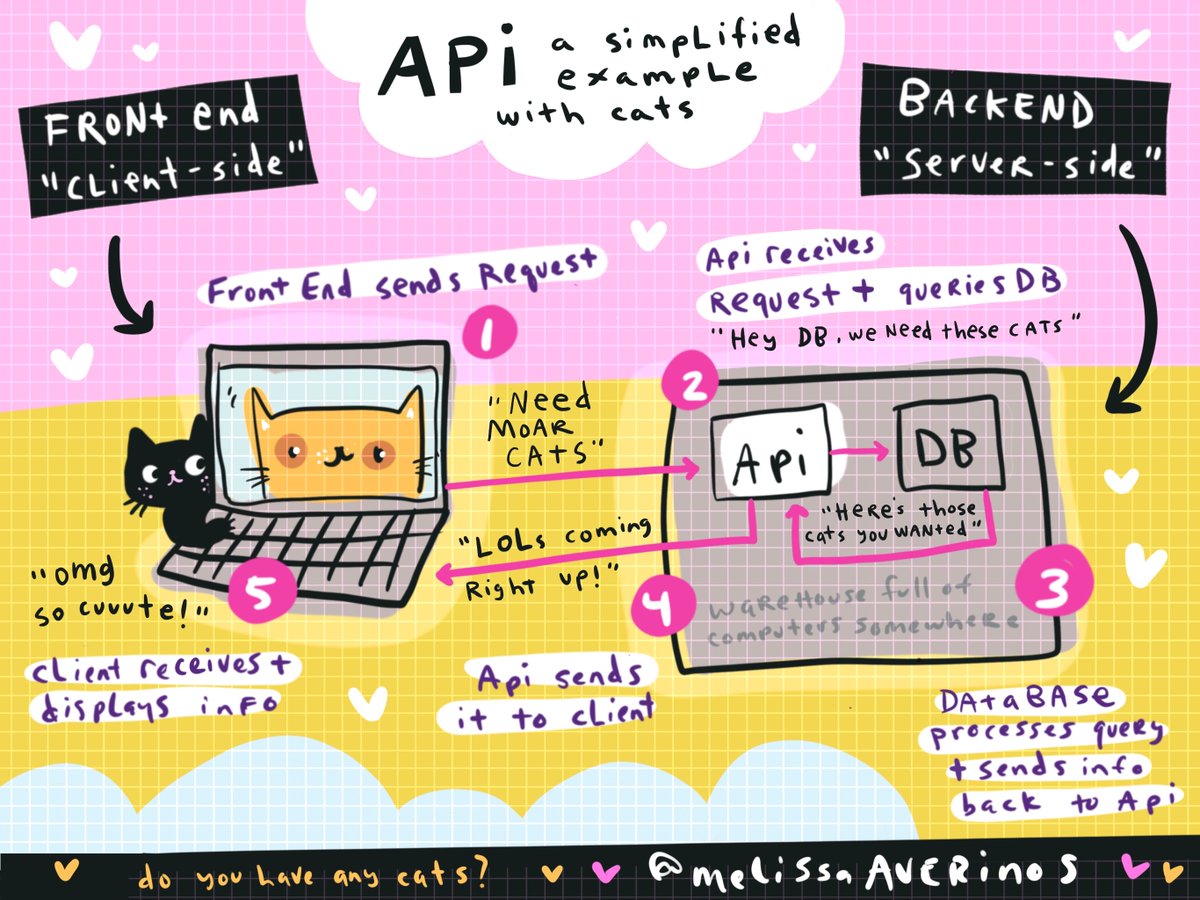 API a simplified
example
with cats
FRONT end
"client-side"
BACKEND
"server-side"
Front End sends Request
1
Api receives
Request + queries DB
"Hey DB, we need these CATS"
2
"Need
MOAR
CATS"
Api
DB
"Here's those
cats you wanted"
3
"LOLs coming
Right up!"
4
warehouse full of
computers somewhere
5
"omg
so cuuute!"
client receives +
displays info
Api sends
it to client
DATABASE
processes query
+ sends info
back to Api
do you have any cats?
@melissaAVERinos